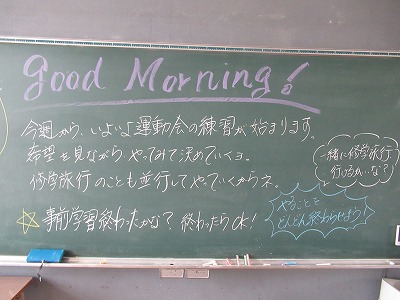 Good Morning!
今週から、いよいよ運動会の練習が始まります。
希望を見ながら、やってみて決めていくヨ。
修学旅行のことも並行してやっていくからネ。
☆事前学習終わったかな？終わったらOK!
一緒に修学旅行
行けるかいな？
やることを
どんどん終わらせよう!